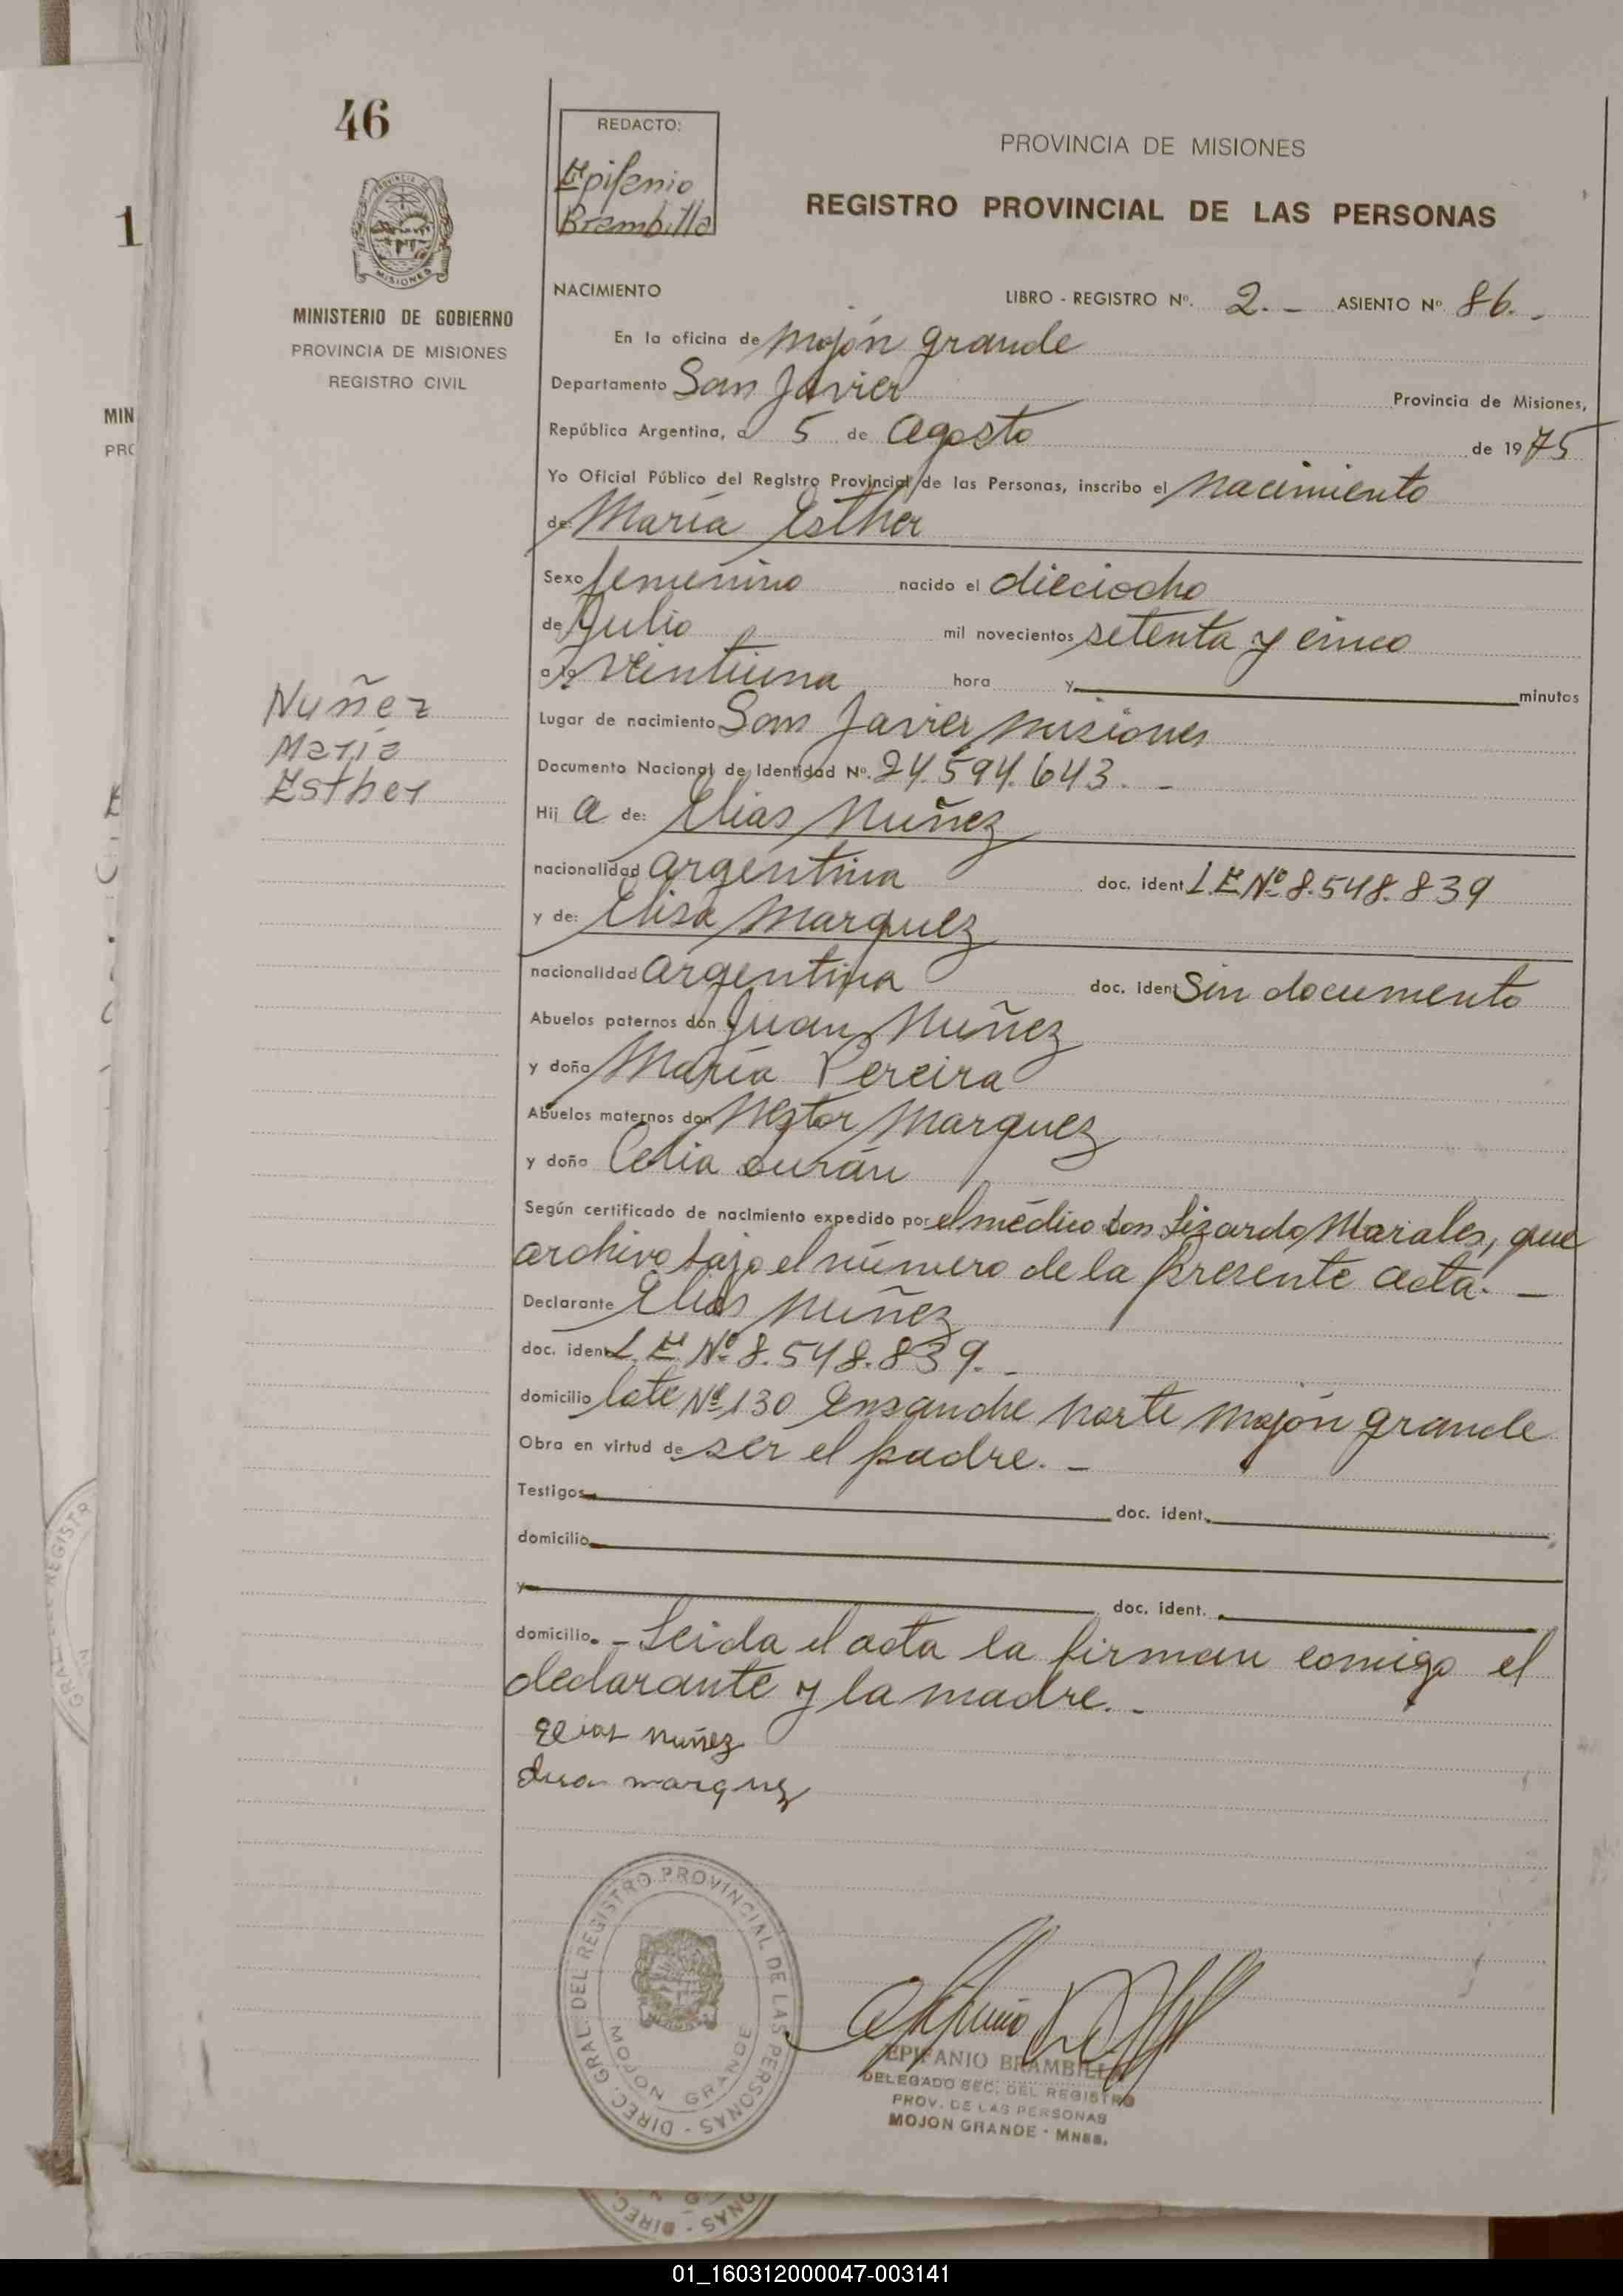 46
REDACTO:
Epifanio
Brambilla
PROVINCIA DE MISIONES
REGISTRO PROVINCIAL DE LAS PERSONAS
1
PROVINCIA DE
MISIONES
MINISTERIO DE GOBIERNO
PROVINCIA DE MISIONES
REGISTRO CIVIL
MIN
PRO
NACIMIENTO
LIBRO - REGISTRO Nº. 2. - ASIENTO Nº 86. -
En la oficina de Mojón grande
Departamento San Javier Provincia de Misiones,
República Argentina, a 5 de Agosto de 1975
Yo Oficial Público del Registro Provincial de las Personas, inscribo el Nacimiento
de: María Esther
Sexo femenino nacido el dieciocho
de Julio mil novecientos setenta y cinco
a la veintiuna hora y minutos
Nuñez
María
Esther
Lugar de nacimiento San Javier Misiones
Documento Nacional de Identidad Nº. 24.594.643. -
Hij a de: Elias Nuñez
nacionalidad argentina doc. ident L.E Nº 8.548.839
y de: Elisa Marquez
nacionalidad argentina doc. ident Sin documento
Abuelos paternos don Juan Nuñez
y doña María Pereira
Abuelos maternos don Nestor Marquez
y doña Celia Durán
Según certificado de nacimiento expedido por el médico don Lizardo Marales, que
archivo bajo el número de la presente acta. -
Declarante Elias Nuñez
doc. ident L.E. Nº 8.548.839. -
domicilio lote Nº 130 Ensanche Norte Mojón grande
Obra en virtud de ser el padre. -
Testigos doc. ident.
domicilio
y doc. ident.
domicilio. - Leida el acta la firman comigo el
declarante y la madre. -
Elias Nuñez
marquez
DIREC. GRAL. DEL REGISTRO PROVINCIAL DE LAS PERSONAS -
MOJON GRANDE
EPIFANIO BRAMBILLA
DELEGADO SEC. DEL REGISTRO
PROV. DE LAS PERSONAS
MOJON GRANDE - MNES.
01_160312000047-003141